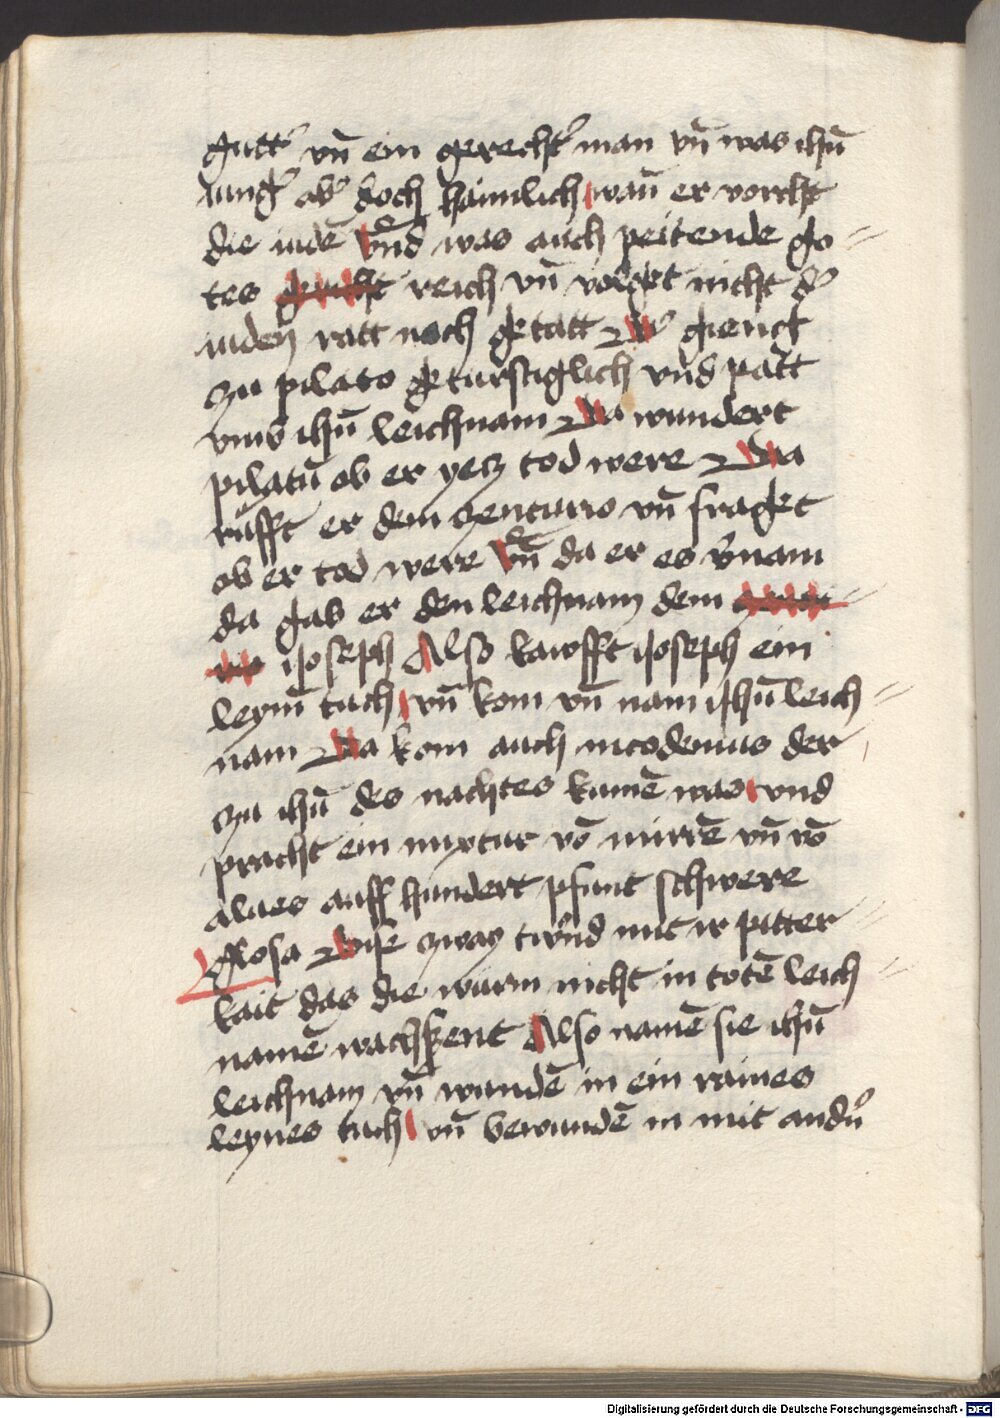 gutt' vn̄ ein gerecht' man vn̄ was ihū
iung' ab' doch haimlich wan̄ er vorcht
die iudē Vnd was auch peitende go=
tes reich vn̄ volget nicht d'
iuden ratt noch getatt Er gienck
zu pilato geturstiglich vnd patt
vmb ihū leichnam Da wundert
pilatū ob er yetz tod were Da
rufft er dem zenturio vn̄ fraget
ob er tod were Vn̄ da er es v'nam
da gab er den leichnam dem
ioseph Also kawfft ioseph ein
leynī tuch vn̄ kom vn̄ nam ihū leich=
nam Da kom auch nicodemus der
zu ihū des nachtes kumē was vnd
pracht ein mixtur vō mirrē vn̄ vō
aloes auff hundert pfunt schwere
Glosa Dise zway twnd mit ir pitter=
kait das die wurm nicht in totē leich=
namē wachssent Also namē sie ihū
leichnam vn̄ wundē in ein raines
leynes tuch vn̄ bewundē in mit andn̄
Digitalisierung gefördert durch die Deutsche Forschungsgemeinschaft - DFG